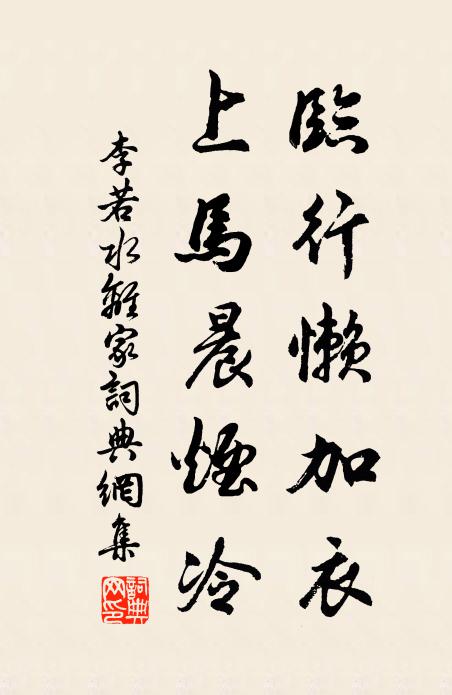 臨行懶加衣
上馬晨煙冷
李若水離家詞典網集
詞典网印